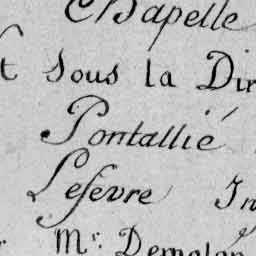 Chapelle
t sous la Dir
Pontallié
Lefevre In
Mr. Demolon